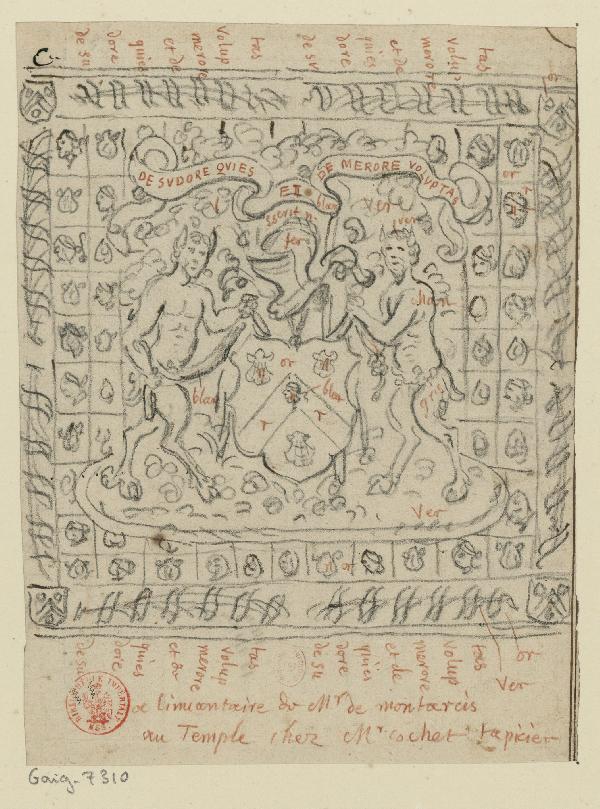 de su dore quies et de merore volup tas de su dore quies et de merore volup tas
DE SVDORE QVIES ET DE MERORE VOLVPTAS
blan
ver
fer
or
or
blan
blan
gris
Ver
or
de su dore quies et de merore volup tas de su dore quies et de merore volup tas
or
ver
a linuantaire do Mr de montarcis
au Temple chez Mr cochet tapicier
Gaig. 7310